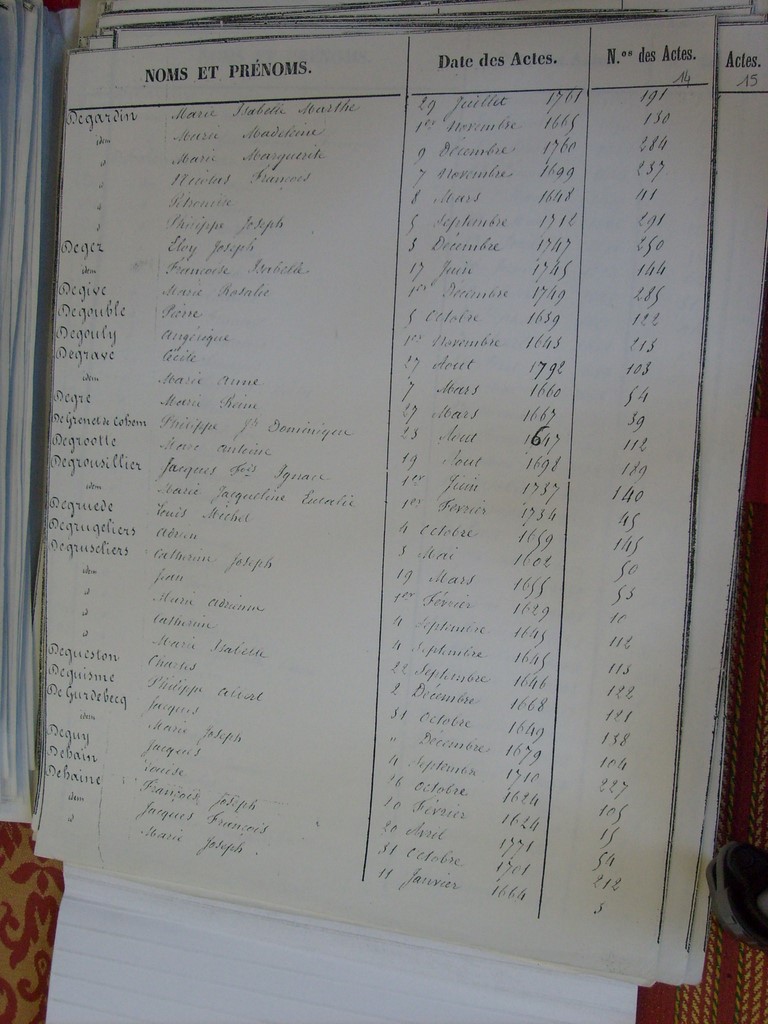 NOMS ET PRÉNOMS. Date des Actes. N.os des Actes. Actes.
14 15
Degardin Marie Isabelle Marthe 29 Juillet 1761 191
idem Marie Madeleine 1er Novembre 1665 130
d Marie Marguerite 9 Décembre 1760 284
d Nicolas François 7 Novembre 1699 237
d Pétronille 8 Mars 1648 41
d Philippe Joseph 5 Septembre 1712 291
Degez Eloy Joseph 3 Décembre 1747 250
idem Françoise Isabelle 17 Juin 1745 144
Degive Marie Rosalie 1er Décembre 1749 285
Degouble Pierre 5 Octobre 1639 122
Degouly Angérique 1er Novembre 1643 213
Degrave Cécile 27 Aout 1792 103
idem Marie Anne 7 Mars 1660 54
Degre Marie Reine 27 Mars 1667 39
DeGrenet de Cohem Philippe Jh Dominique 23 Aout 1647 112
Degrootte Marc Antoine 19 Aout 1698 189
Degrousillier Jacques Fois Ignace 1er Juin 1737 140
idem Marie Jacqueline Eulalie 1er Février 1734 45
Degruede Louis Michel 4 Octobre 1659 145
Degrugeliers Adrien 3 Mai 1602 50
Degruseliers Catherine Joseph 19 Mars 1655 53
idem Jean 1er Février 1629 10
d Marie Adrienne 4 Septembre 1645 112
d Catherine 4 Septembre 1645 113
d Marie Isabelle 22 Septembre 1646 122
Dequeston Charles 2 Décembre 1668 121
Deguisme Philippe Albert 31 Octobre 1649 138
DeGurdebecq Jacques " Décembre 1679 104
idem Marie Joseph 4 Septembre 1710 227
Deguy Jacques 26 Octobre 1624 105
Dehain Louise 10 Février 1624 15
Dehaine François Joseph 20 Avril 1771 54
idem Jacques François 31 Octobre 1701 212
d Marie Joseph 11 Janvier 1664 3